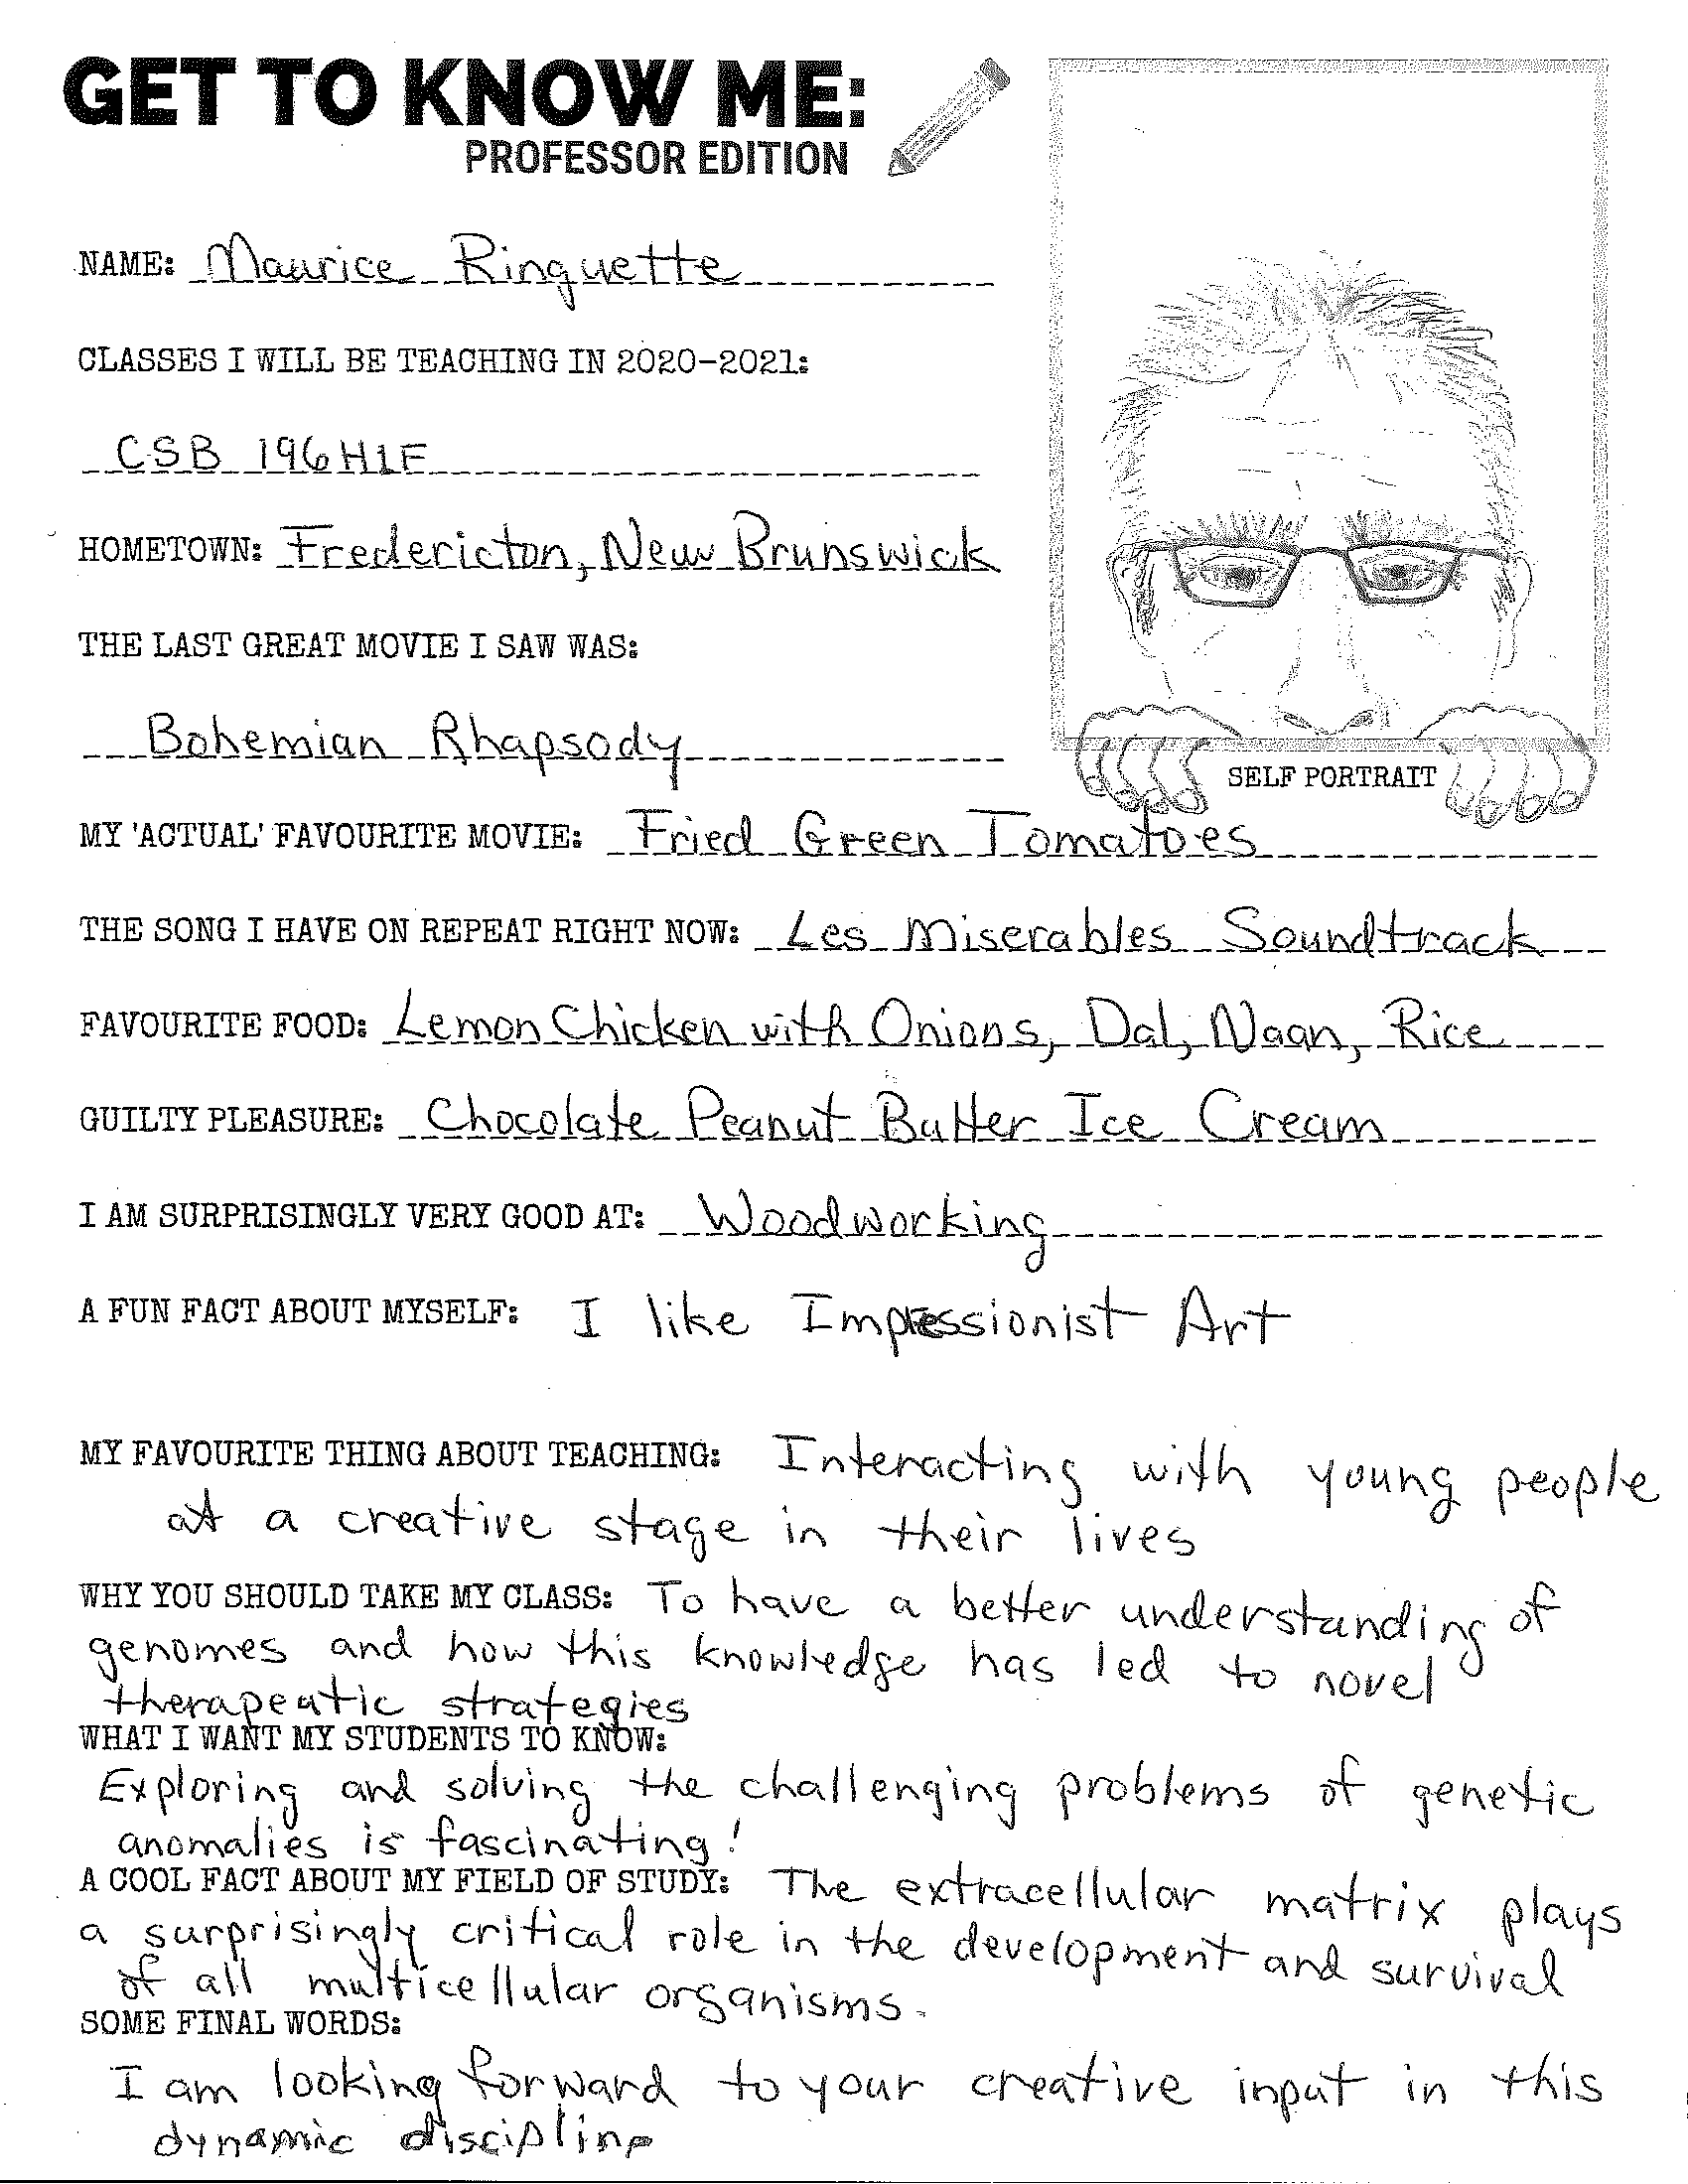 GET TO KNOW ME:
PROFESSOR EDITION
NAME: Maurice Ringuette
CLASSES I WILL BE TEACHING IN 2020-2021:
CSB 196H1F
HOMETOWN: Fredericton, New Brunswick
THE LAST GREAT MOVIE I SAW WAS:
Bohemian Rhapsody
SELF PORTRAIT
MY 'ACTUAL' FAVOURITE MOVIE: Fried Green Tomatoes
THE SONG I HAVE ON REPEAT RIGHT NOW: Les Miserables Soundtrack
FAVOURITE FOOD: Lemon Chicken with Onions, Dal, Naan, Rice
GUILTY PLEASURE: Chocolate Peanut Butter Ice Cream
I AM SURPRISINGLY VERY GOOD AT: Woodworking
A FUN FACT ABOUT MYSELF: I like Impressionist Art
MY FAVOURITE THING ABOUT TEACHING: Interacting with young people
at a creative stage in their lives
WHY YOU SHOULD TAKE MY CLASS: To have a better understanding of
genomes and how this knowledge has led to novel
therapeutic strategies
WHAT I WANT MY STUDENTS TO KNOW:
Exploring and solving the challenging problems of genetic
anomalies is fascinating!
A COOL FACT ABOUT MY FIELD OF STUDY: The extracellular matrix plays
a surprisingly critical role in the development and survival
of all multicellular organisms.
SOME FINAL WORDS:
I am looking forward to your creative input in this
dynamic discipline